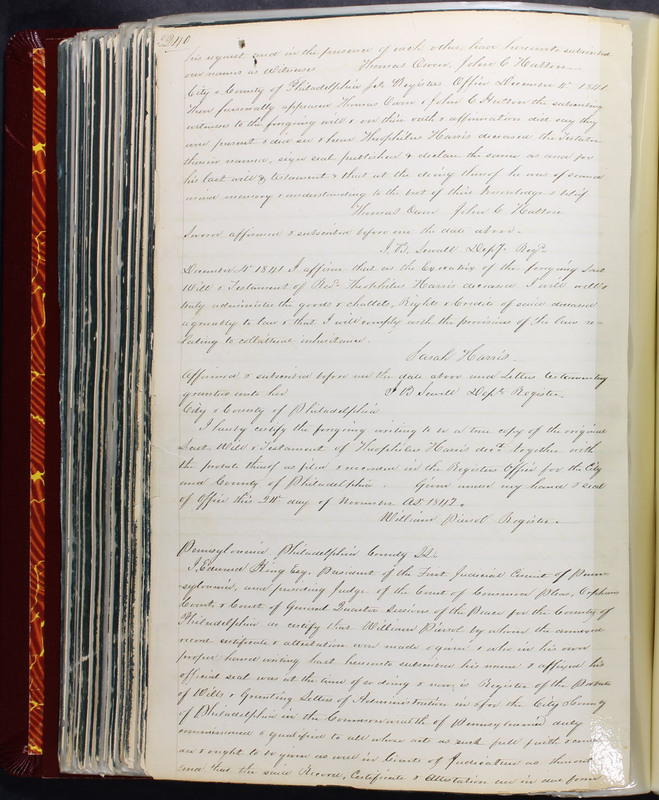 240
his request and in the presence of each other have hereunto subscribed
our names as Witnesses Thomas Owen, John C Hutton
City & County of Philadelphia Registers Office December 15th 1841
Then personally appeared Thomas Owen & John C Hutton the subscribing
witnesses to the foregoing will & on their oath & affirmation did say they
were present & did see & hear Theophilus Harris deceased the Testator
therein named, sign seal publish & declare the same as and for
his last will & testament & that at the doing thereof he was of sound
mind memory & understanding to the best of their knowledge & belief
Thomas Owen John C Hutton
Sworn affirmed & subscribed before me the date above.
J. B. Sewall Depy. Regr.
December 15th 1841 I affirm that as the Executrix of the foregoing last
Will & Testament of Revd. Theophilus Harris deceased I will well &
truly administer the goods & chattels, Rights & Credits of said deceased
agreeably to law & that I will comply with the provisions of the law re-
lating to collateral inheritance.
Sarah Harris
Affirmed & subscribed before me the date above and Letters testamentary
granted unto her J B Sewall Depy. Register.
City & County of Philadelphia
I hereby certify the foregoing writing to be a true copy of the original
Last Will & Testament of Theophilus Harris decd. together with
the probate thereof as filed & recorded in the Registers Office for the City
and County of Philadelphia. Given under my hand & seal
of office this 24th day of November AD. 1842.
William Register.
Pennsylvania, Philadelphia County Ss.
I, Edward King Esq. President of the First Judicial Circuit of Penn-
sylvania, and presiding Judge of the Court of Common Pleas, Orphans
Court & Court of General Quarter Sessions of the Peace for the County of
Philadelphia do certify that William by whom the annexed
record certificate & attestation were made & given & who in his own
proper hand writing hath hereunto subscribed his name & affixed his
official seal was at the time of so doing & now is Register of the Probate
of Wills & Granting Letters of Administration in & for the City & County
of Philadelphia in the Commonwealth of Pennsylvania duly
commissioned & qualified to all whose acts as such full faith & credit
are & ought to be given as well in Courts of Judicature as thereout
and that the said Record, Certificate & Attestation are in due form